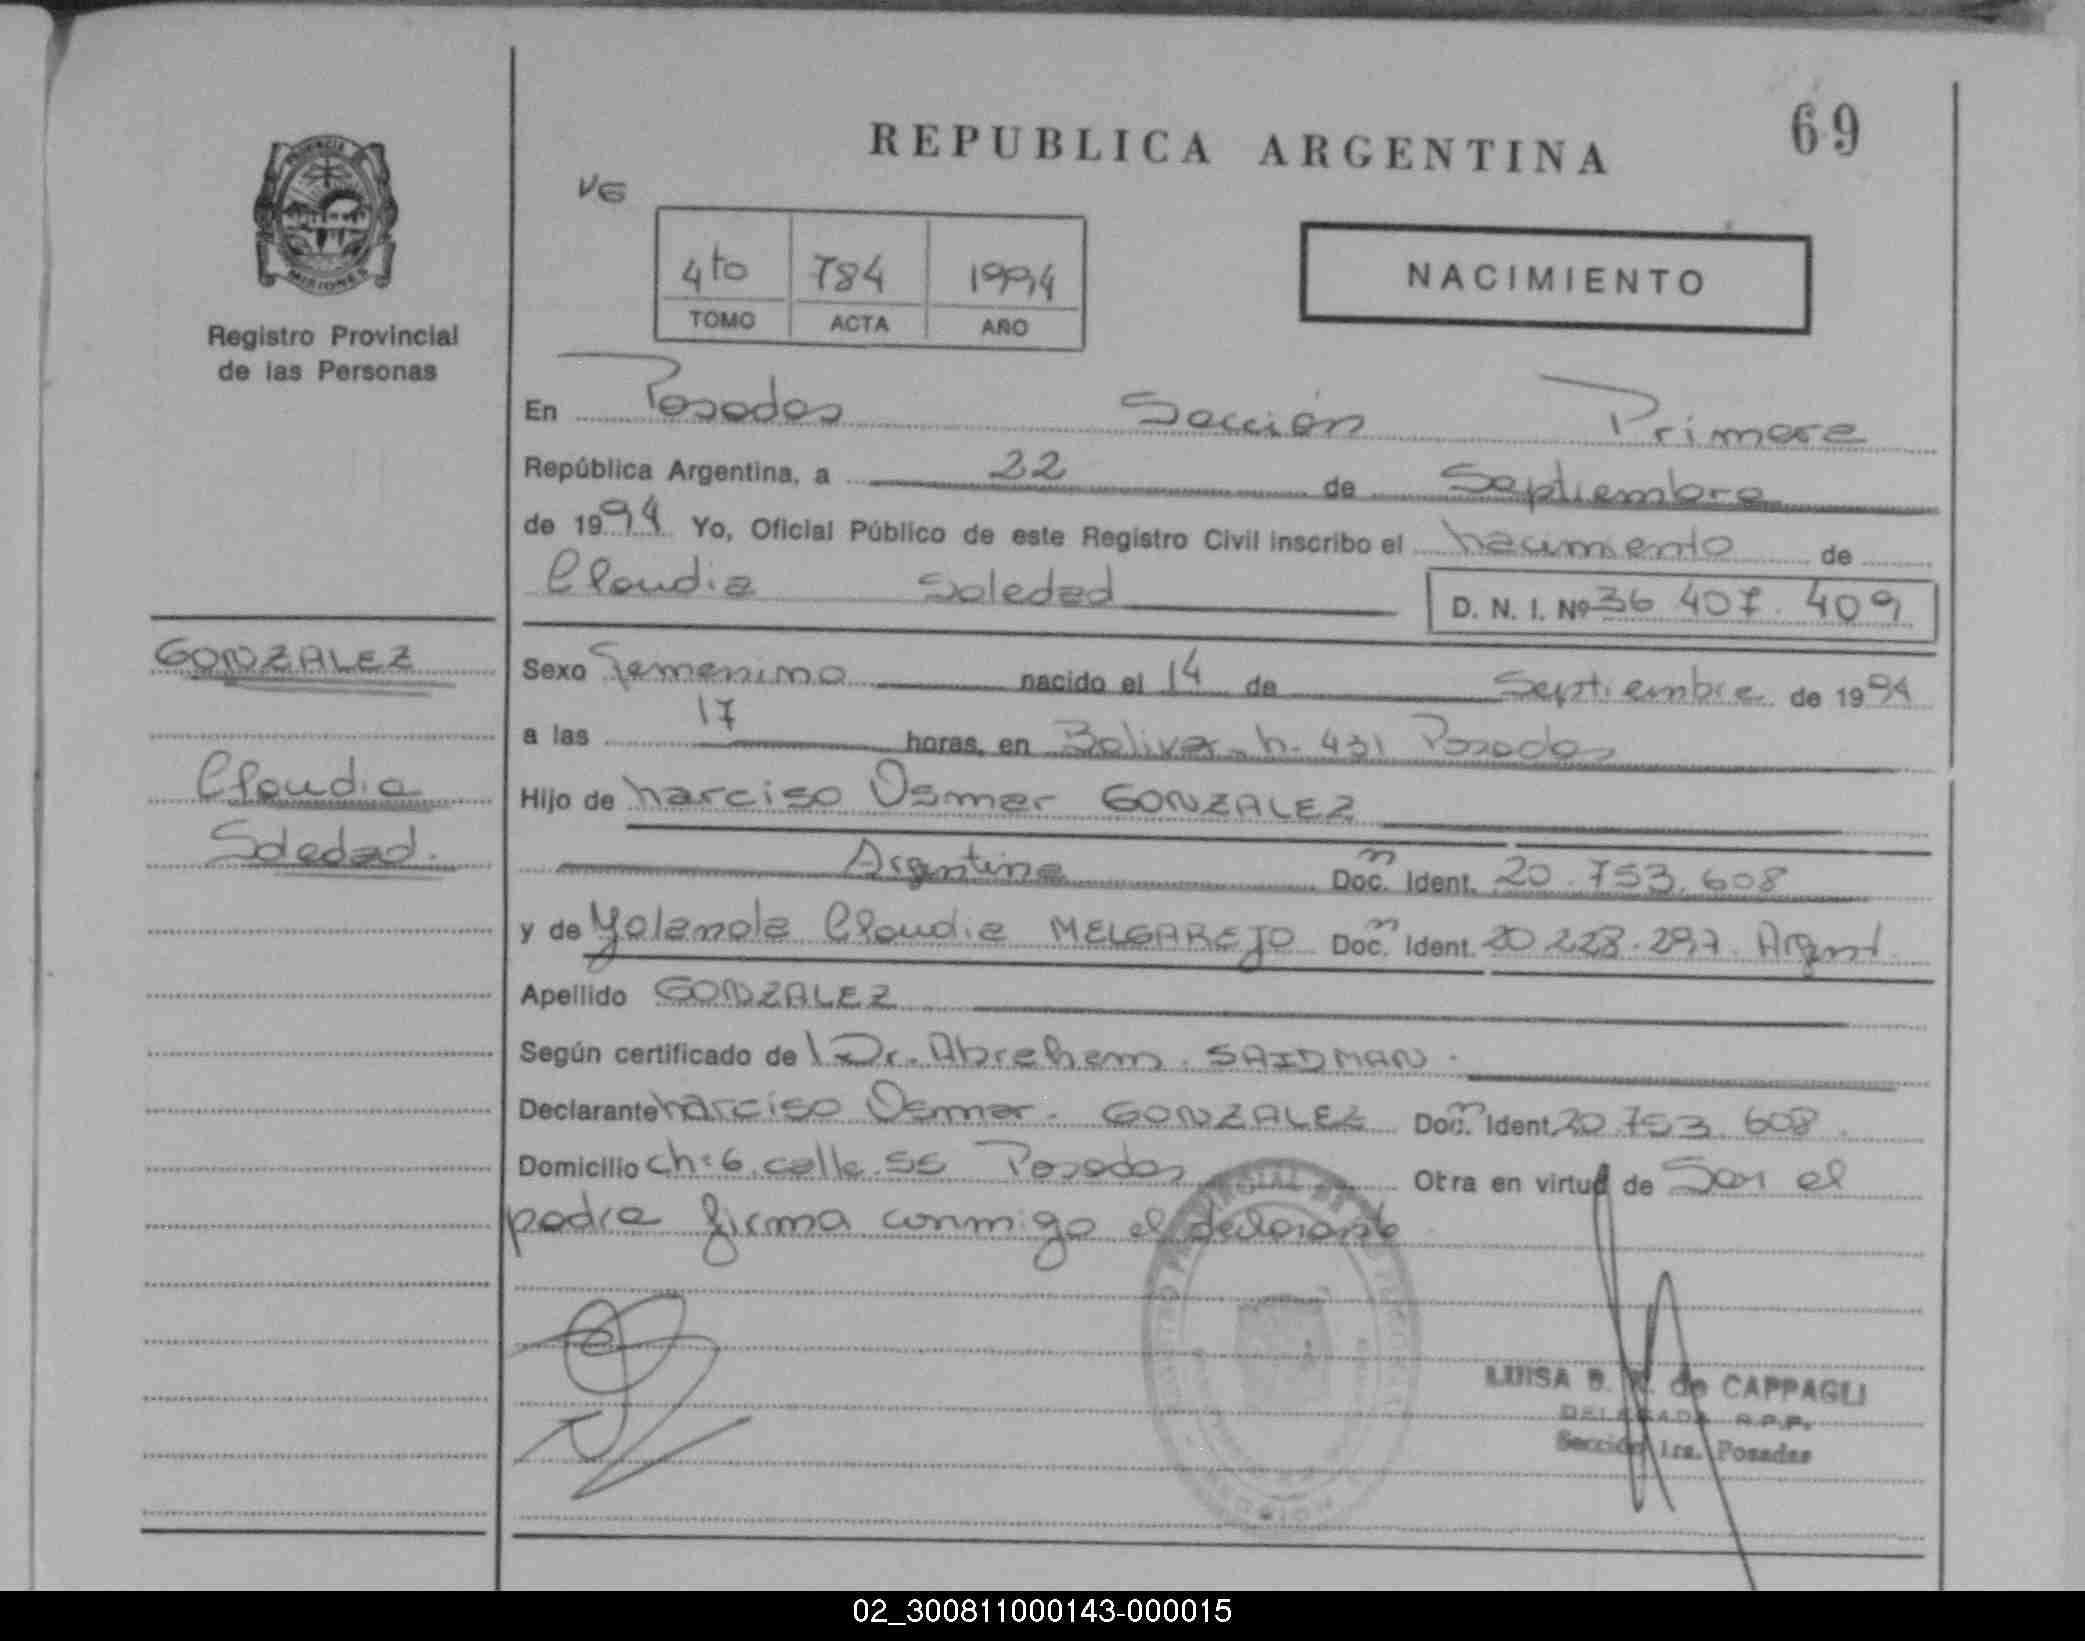 REPUBLICA ARGENTINA
69
VG
PROVINCIA DE
MISIONES
Registro Provincial
de las Personas
4to 784 1994
TOMO ACTA AÑO
NACIMIENTO
En Posadas Sección Primera
República Argentina, a 22 de Septiembre
de 1994 Yo, Oficial Público de este Registro Civil inscribo el nacimiento de
Claudia Soledad D. N. I. Nº 36 407.409
GONZALEZ
Claudia
Soledad.
Sexo Femenino nacido el 14 de Septiembre de 1994
a las 17 horas, en Bolivar n. 431 Posadas
Hijo de Narciso Osmar GONZALEZ
Argentina Doc. Ident. 20.753.608
y de Yolanda Claudia MELGAREJO Doc. Ident. 20 228.297. Argent.
Apellido GONZALEZ
Según certificado de Dr. Abraham. SAIDMAN.
Declarante Narciso Osmar. GONZALEZ Doc. Ident. 20 753 608.
Domicilio ch: 6. calle 55 Posadas Otra en virtud de Ser el
padre firma conmigo el declarante
LUISA B. de CAPPAGLI
DELEGADA R.P.P.
Sección 1ra. Posadas
02_300811000143-000015